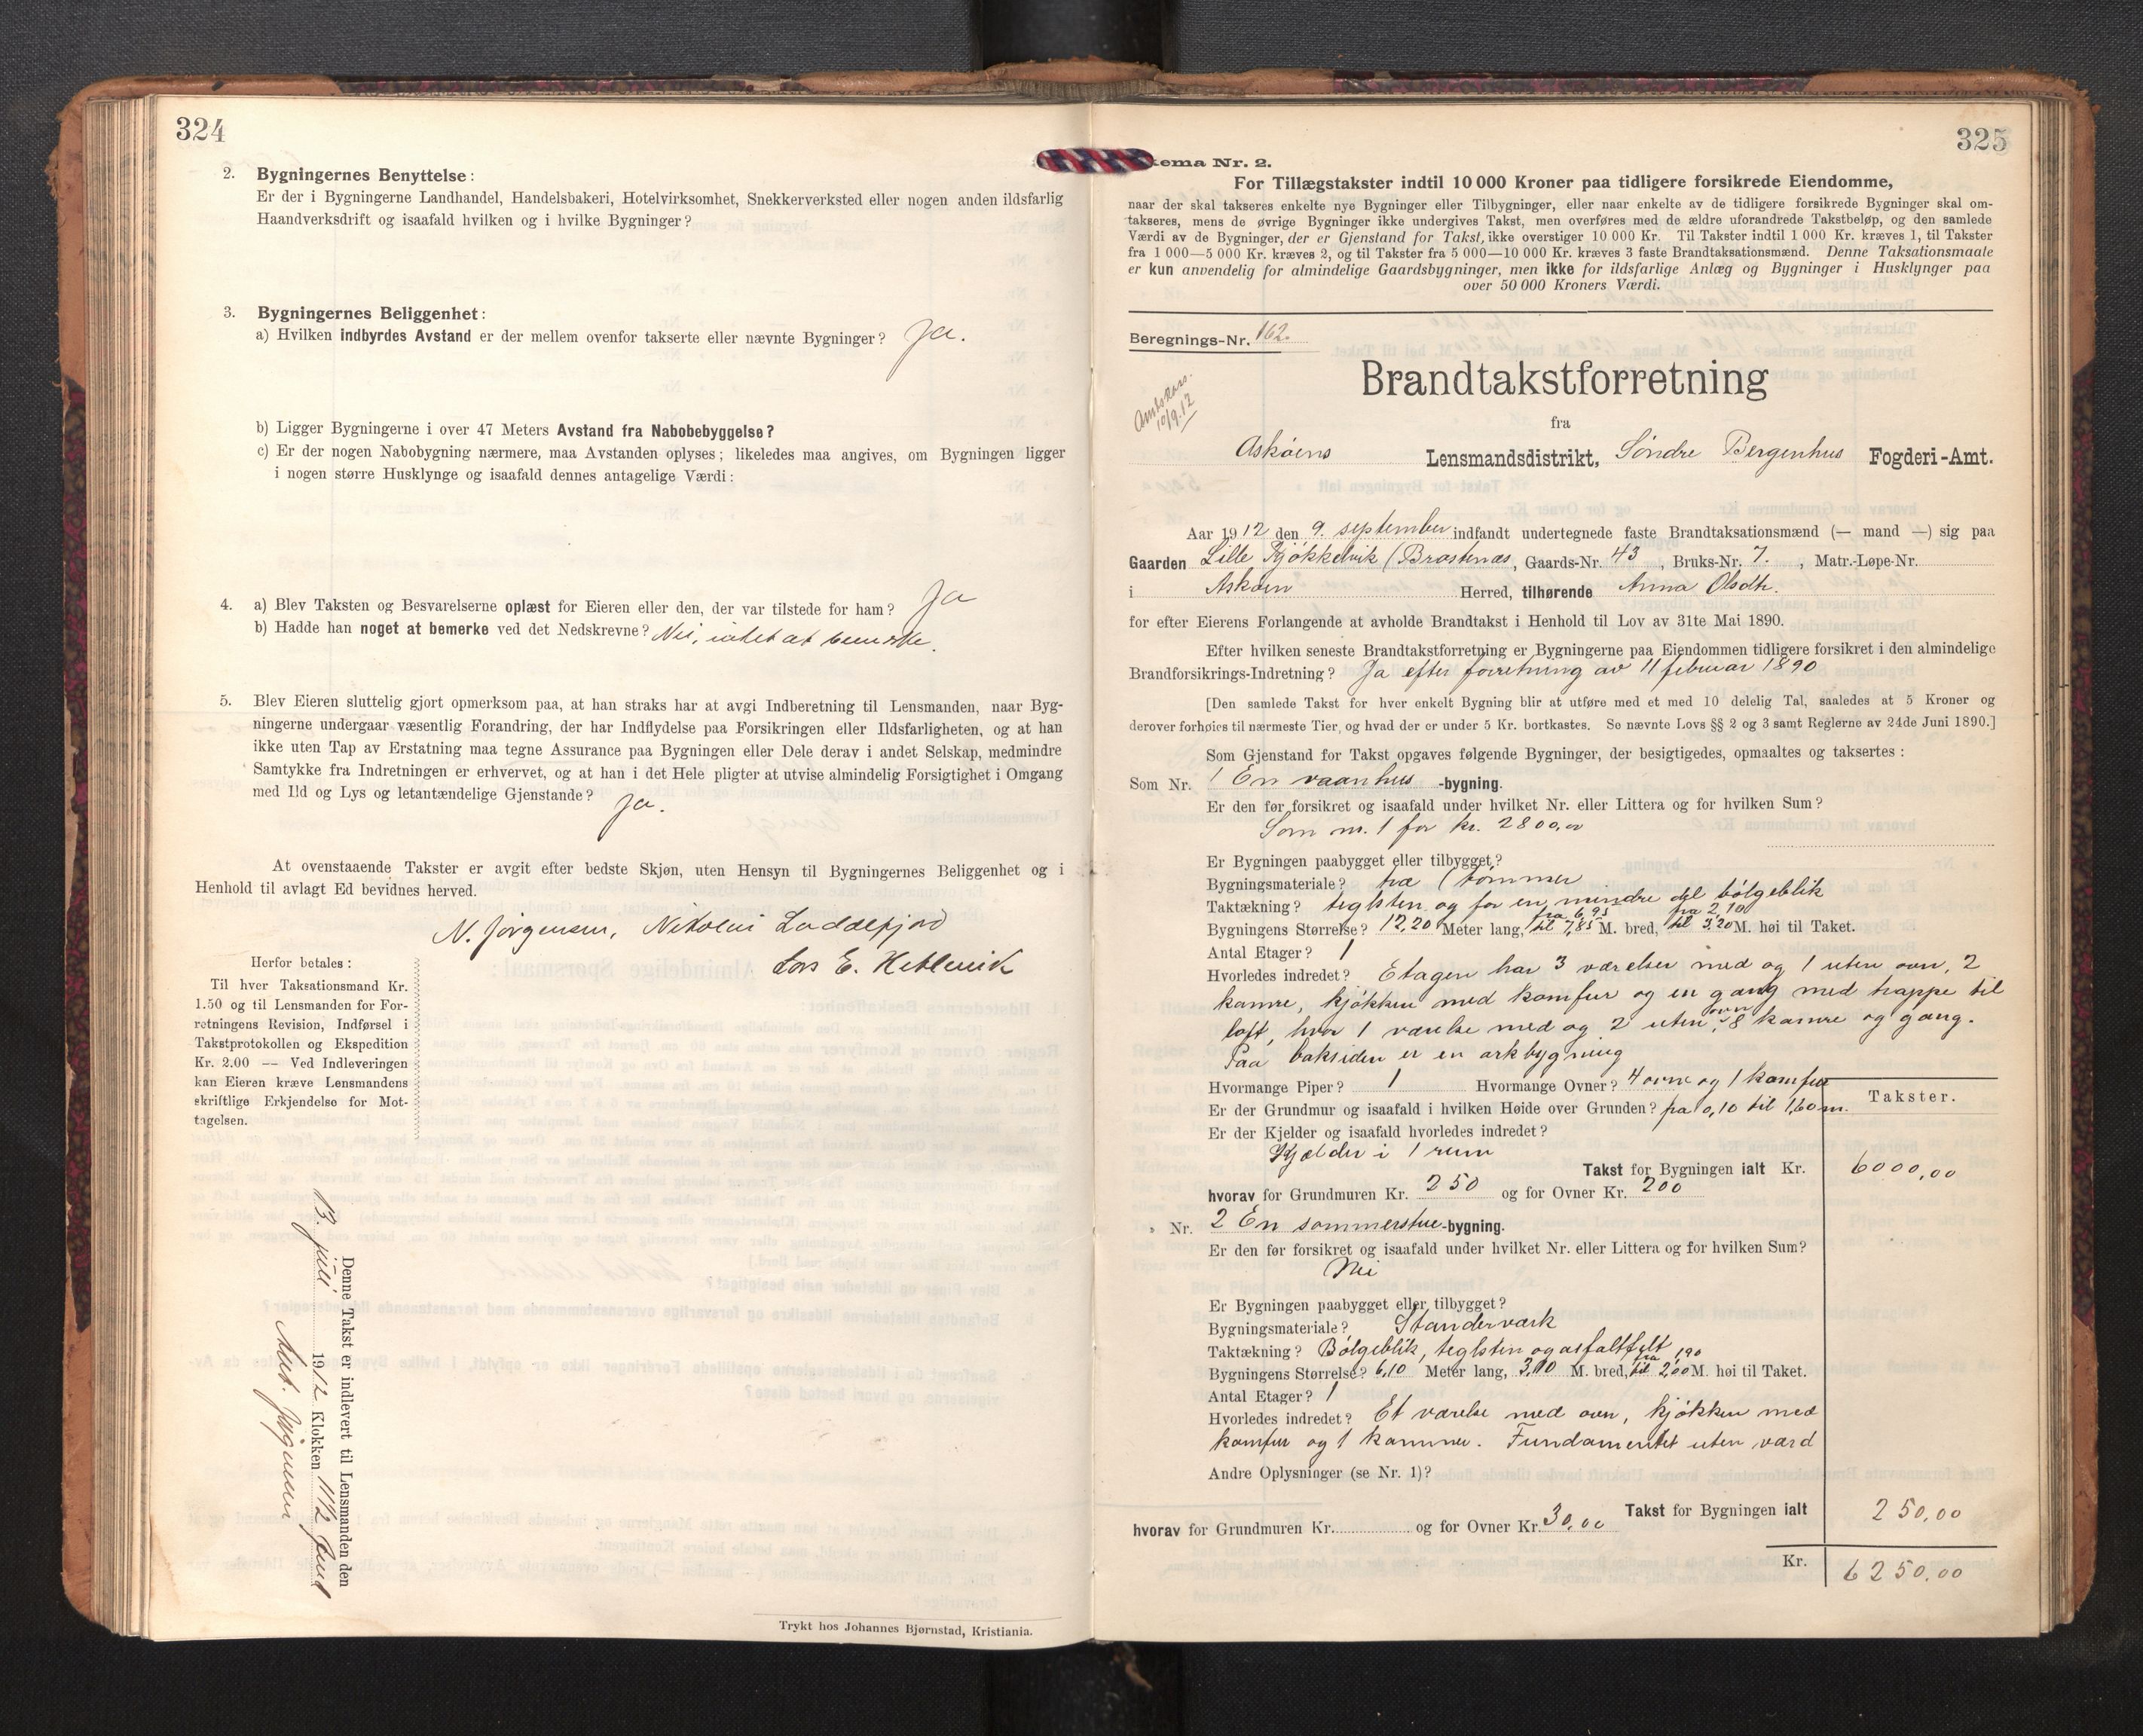 324
2. Bygningernes Benyttelse:
Er der i Bygningerne Landhandel, Handelsbakeri, Hotelvirksomhet, Snekkerverksted eller nogen anden ildsfarlig
Haandverksdrift og isaafald hvilken og i hvilke Bygninger?
3. Bygningernes Beliggenhet:
a) Hvilken indbyrdes Avstand er der mellem ovenfor takserte eller nævnte Bygninger? Ja.
b) Ligger Bygningerne i over 47 Meters Avstand fra Nabobebyggelse?
c) Er der nogen Nabobygning nærmere, maa Avstanden oplyses; likeledes maa angives, om Bygningen ligger
i nogen større Husklynge og isaafald dennes antagelige Værdi:
4. a) Blev Taksten og Besvarelserne oplæst for Eieren eller den, der var tilstede for ham? Ja
b) Hadde han noget at bemerke ved det Nedskrevne? Nei, intet at bemerke.
5. Blev Eieren sluttelig gjort opmerksom paa, at han straks har at avgi Indberetning til Lensmanden, naar Byg-
ningerne undergaar væsentlig Forandring, der har Indflydelse paa Forsikringen eller Ildsfarligheten, og at han
ikke uten Tap av Erstatning maa tegne Assurance paa Bygningen eller Dele derav i andet Selskap, medmindre
Samtykke fra Indretningen er erhvervet, og at han i det Hele pligter at utvise almindelig Forsigtighet i Omgang
med Ild og Lys og letantændelige Gjenstande? Ja.
At ovenstaaende Takster er avgit efter bedste Skjøn, uten Hensyn til Bygningernes Beliggenhet og i
Henhold til avlagt Ed bevidnes herved.
N. Jørgensen, Nikolai Loddefjord
Lars E.
Herfor betales:
Til hver Taksationsmand Kr.
1.50 og til Lensmanden for For-
retningens Revision, Indførsel i
Takstprotokollen og Ekspedition
Kr. 2.00 — Ved Indleveringen
kan Eieren kræve Lensmandens
skriftlige Erkjendelse for Mot-
tagelsen.
Denne Takst er indlevert til Lensmanden den
13 juli 1912 Klokken 11½ fmd
Jørgensen
Trykt hos Johannes Bjørnstad, Kristiania.
325
kema Nr. 2.
For Tillægstakster indtil 10 000 Kroner paa tidligere forsikrede Eiendomme,
naar der skal takseres enkelte nye Bygninger eller Tilbygninger, eller naar enkelte av de tidligere forsikrede Bygninger skal om-
takseres, mens de øvrige Bygninger ikke undergives Takst, men overføres med de ældre uforandrede Takstbeløp, og den samlede
Værdi av de Bygninger, der er Gjenstand for Takst, ikke overstiger 10 000 Kr. Til Takster indtil 1 000 Kr. kræves 1, til Takster
fra 1 000—5 000 Kr. kræves 2, og til Takster fra 5 000—10 000 Kr. kræves 3 faste Brandtaksationsmænd. Denne Taksationsmaate
er kun anvendelig for almindelige Gaardsbygninger, men ikke for ildsfarlige Anlæg og Bygninger i Husklynger paa
over 50 000 Kroners Værdi.
Beregnings-Nr. 162.
10/9.12
Brandtakstforretning
fra
Askøens Lensmandsdistrikt, Søndre Bergenhus Fogderi-Amt.
Aar 1912 den 9. september indfandt undertegnede faste Brandtaksationsmænd (— mand —) sig paa
Gaarden Lille Kjøkkelvik (Brastenæs, Gaards-Nr. 43, Bruks-Nr. 7., Matr.-Løpe-Nr.
i Askøen Herred, tilhørende Anna Olsdtr.
for efter Eierens Forlangende at avholde Brandtakst i Henhold til Lov av 31te Mai 1890.
Efter hvilken seneste Brandtakstforretning er Bygningerne paa Eiendommen tidligere forsikret i den almindelige
Brandforsikrings-Indretning? Ja efter forretning av 11 februar 1890
[Den samlede Takst for hver enkelt Bygning blir at utføre med et med 10 delelig Tal, saaledes at 5 Kroner og
derover forhøies til nærmeste Tier, og hvad der er under 5 Kr. bortkastes. Se nævnte Lovs §§ 2 og 3 samt Reglerne av 24de Juni 1890.]
Som Gjenstand for Takst opgaves følgende Bygninger, der besigtigedes, opmaaltes og taksertes:
Som Nr. 1 En vaanhus -bygning.
Er den før forsikret og isaafald under hvilket Nr. eller Littera og for hvilken Sum?
Som nr. 1 for kr. 2800,00
Er Bygningen paabygget eller tilbygget?
Bygningsmateriale? træ (tømmer
Taktækning? teglsten og for en mindre del bølgeblik
Bygningens Størrelse? 12,20 Meter lang, fra 6,95 til 7,85 M. bred, fra 2,10 til 3,20 M. høi til Taket.
Antal Etager? 1
Hvorledes indredet? Etagen har 3 værelser med og 1 uten ovn, 2
kamre, kjøkken med komfur og en gang med trappe til
loft, hvor 1 værelse med og 2 uten ovn, 8 kamre og gang.
Paa baksiden er en arkbygning
Hvormange Piper? 1 Hvormange Ovner? 4 ovne og 1 komfur
Takster.
Er der Grundmur og isaafald i hvilken Høide over Grunden? fra 0,10 til 1,60 m.
Er der Kjelder og isaafald hvorledes indredet?
Kjælder i 1 rum
Takst for Bygningen ialt Kr. 6000,00
hvorav for Grundmuren Kr. 250 og for Ovner Kr. 200
" Nr. 2 En sommerstue-bygning.
Er den før forsikret og isaafald under hvilket Nr. eller Littera og for hvilken Sum?
Nei
Er Bygningen paabygget eller tilbygget?
Bygningsmateriale? Standerværk
Taktækning? Bølgeblik, teglsten og asfaltfilt
Bygningens Størrelse? 6,10 Meter lang, 3,10 M. bred, fra 1,90 til 2,00 M. høi til Taket.
Antal Etager? 1
Hvorledes indredet? Et værelse med ovn, kjøkken med
komfur og 1 kammer. Fundamentet uten værd
Andre Oplysninger (se Nr. 1)?
Takst for Bygningen ialt 250,00
hvorav for Grundmuren Kr. og for Ovner Kr. 30,00
Kr. 6250,00